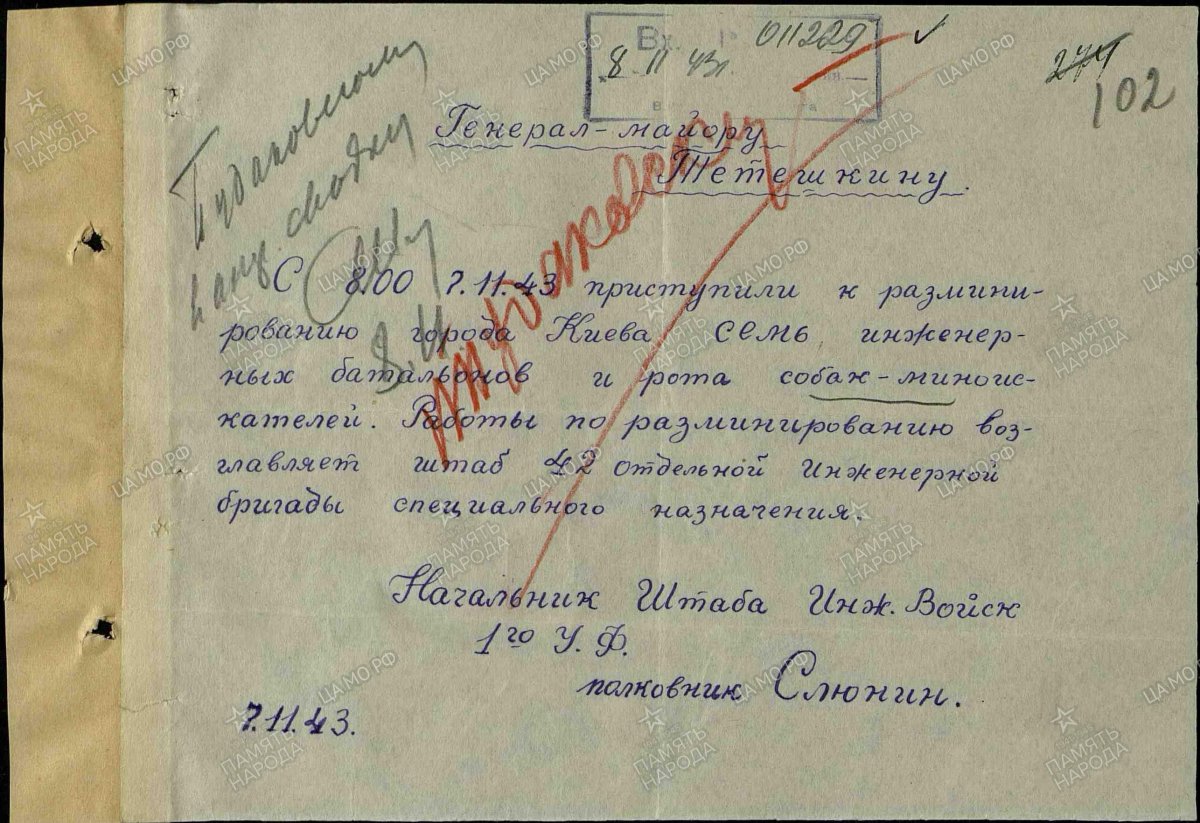 Вх. № 011229
8 11 43г.
274
102
Генерал-майору
Тетешкину.
в опер сводку
8.11
С 8.00 7.11.43 приступили к размини-
рованию города Киева семь инженер-
ных батальонов и рота собак-миноис-
кателей. Работы по разминированию воз-
главляет штаб 42 отдельной инженерной
бригады специального назначения.
Начальник Штаба Инж. Войск
1го У.Ф.
полковник Слюнин.
7.11.43.
ПАМЯТЬ НАРОДА
ЦАМО.РФ